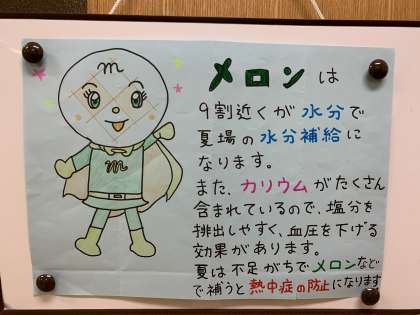 m
m
メロンは
9割近くが水分で
夏場の水分補給に
なります。
また、カリウムがたくさん
含まれているので、塩分を
排出しやすく、血圧を下げる
効果があります。
夏は不足がちでメロンなど
で補うと熱中症の防止になります